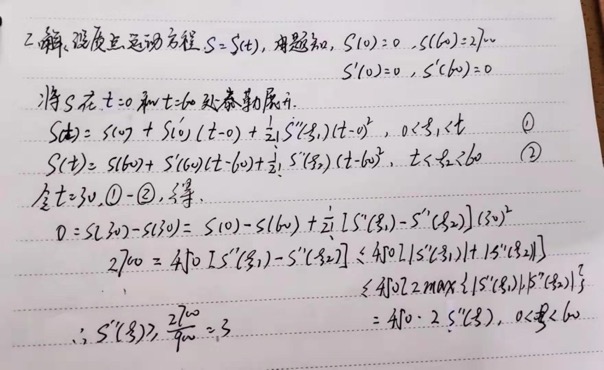 2.解、设质点运动方程 S=S(t), 由题知, S(0)=0, S(60)=2700
S'(0)=0, S'(60)=0
将S在t=0和t=60处泰勒展开.
S(t)=S(0)+S'(0)(t-0)+1/2! S''(ξ₁)(t-0)², 0<ξ₁<t ①
S(t)=S(60)+S'(60)(t-60)+1/2! S''(ξ₂)(t-60)², t<ξ₂<60 ②
令t=30, ①-②, 得.
0=S(30)-S(30)=S(0)-S(60)+1/2! [S''(ξ₁)-S''(ξ₂)](30)²
2700=450[S''(ξ₁)-S''(ξ₂)]≤450[|S''(ξ₁)|+|S''(ξ₂)|]
≤450[2max{|S''(ξ₁)|,|S''(ξ₂)|}
=450·2S''(ξ), 0<ξ<60
∴S''(ξ)≥2700/900=3